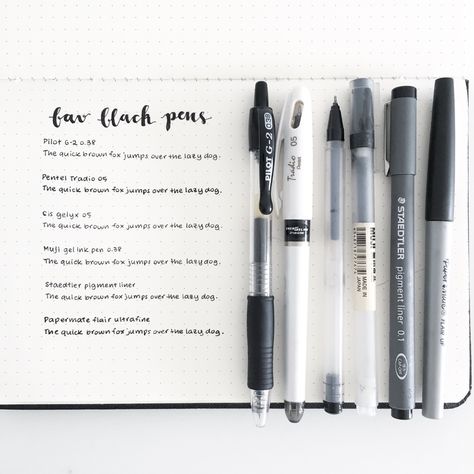 fav black pens
Pilot G-2 0.38
The quick brown fox jumps over the lazy dog.
Pentel Tradio 05
The quick brown fox jumps over the lazy dog.
Sis gelyx 05
The quick brown fox jumps over the lazy dog.
Muji gel ink pen 0.38
The quick brown fox jumps over the lazy dog.
Staedtler pigment liner
The quick brown fox jumps over the lazy dog.
Papermate flair ultrafine
The quick brown fox jumps over the lazy dog.
PILOT G-2 0.38
Tradio 05
Pentel
MUJI
MADE IN
JAPAN
STAEDTLER
pigment liner
0.1